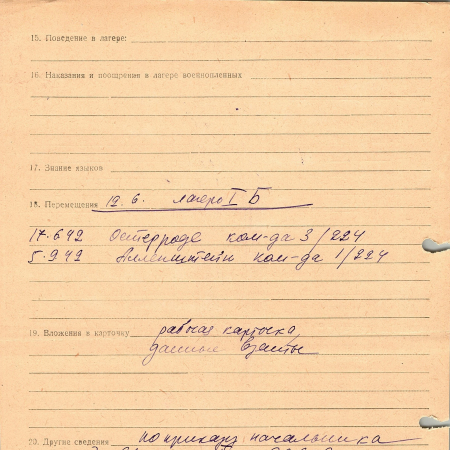 15. Поведение в лагере:
16. Наказания и поощрение в лагере военнопленных
17. Знание языков
18. Перемещения 12. 6. лагерь I Б
17.6 42 Остерроде ком-да 3/224
5.9 42 Алленштейн ком-да 1/224
19. Вложения в карточку рабочая карточка
данные взяты
20. Другие сведения по приказу начальника